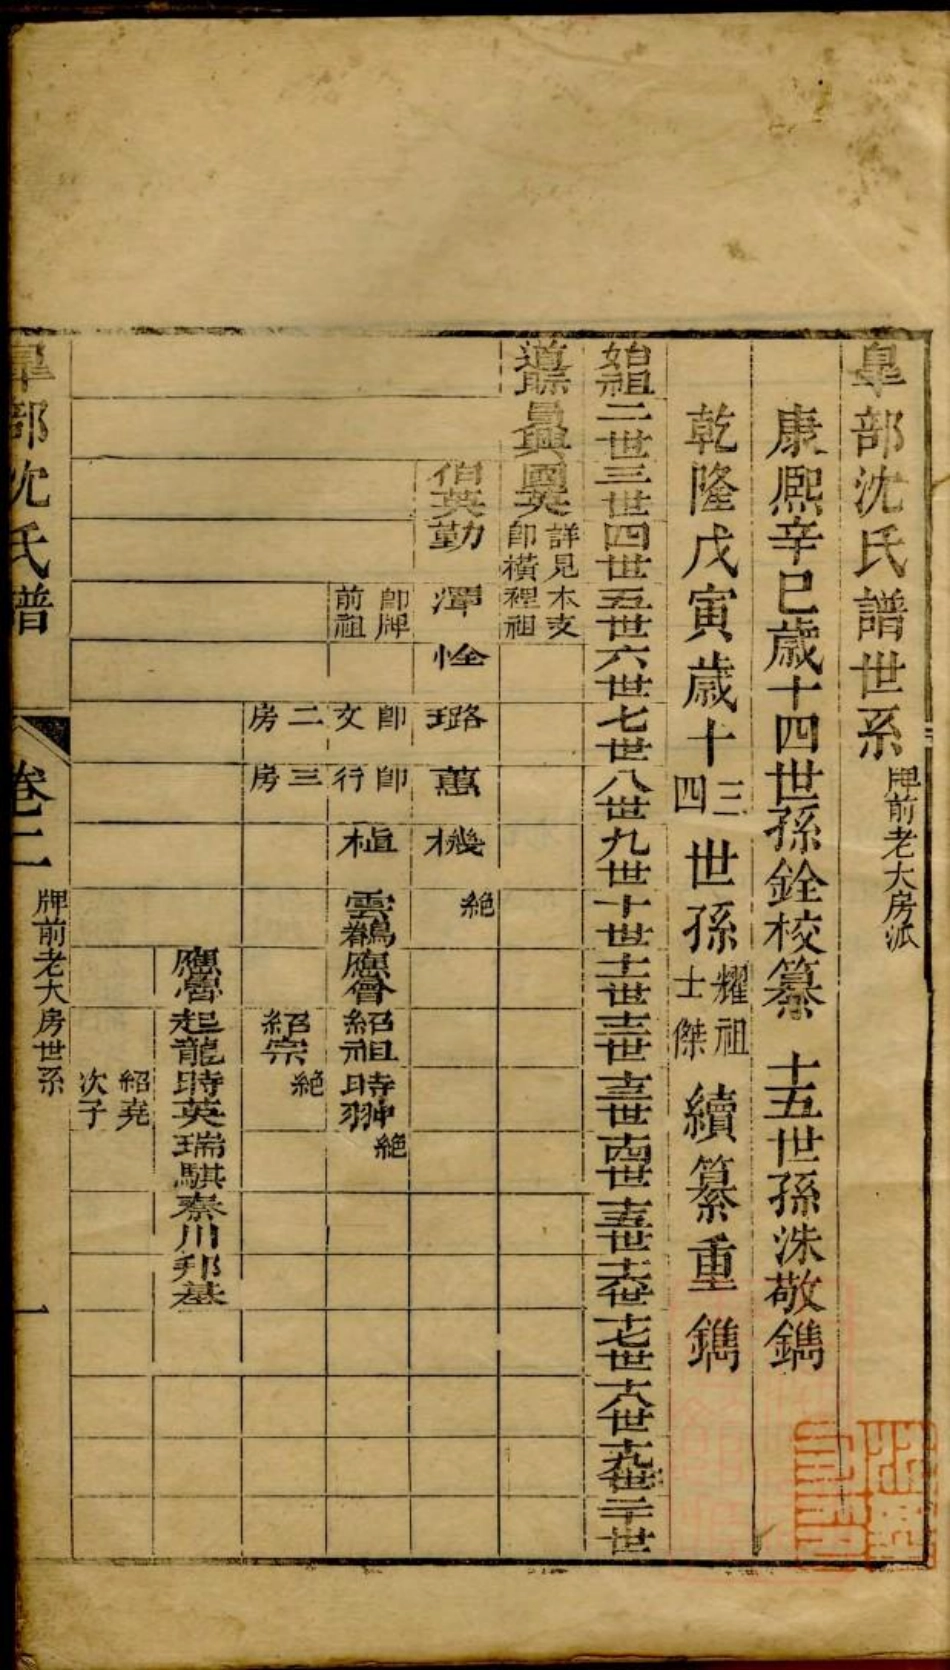 皐部沈氏譜世系 牌前老大房派
康熙辛巳歲十四世孫銓校纂 十五世孫洙敬鐫
乾隆戊寅歲十三四世孫耀祖士傑續纂重鐫
始祖 二世 三世 四世 五世 六世 七世 八世 九世 十世 十一世 十二世 十三世 十四世 十五世 十六世 十七世 十八世 十九世 二十世
道 昺興 國英 詳見本支卽橫裡祖
伯英 勤 澤 恮 璐 蕙 機 絶
卽牌前祖 卽文 卽行 楨 雲鵷 應會 紹祖 時翀 絶
二房 三房 紹宗 絶
應魯 起龍 時英 瑞騏 秦川 邦基
紹堯次子
皐部沈氏譜 卷二 牌前老大房世系 一